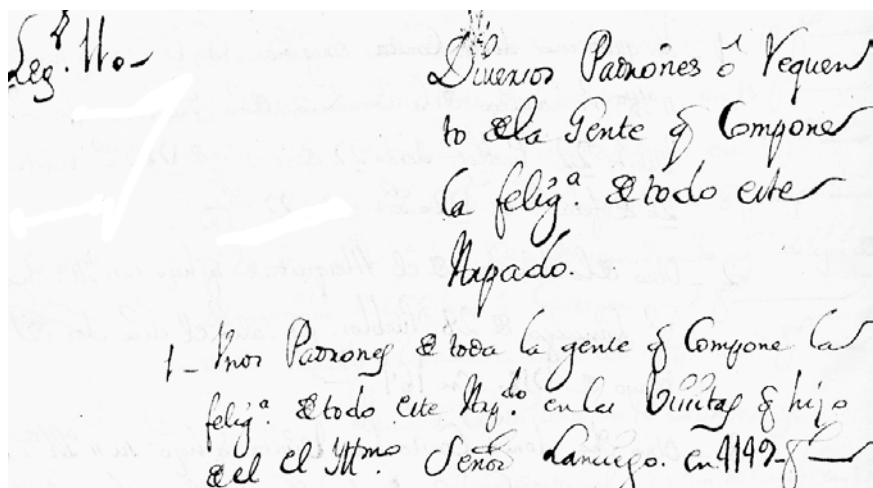 Leg.º 11o-
Diversos Padrones ô Requen
to de la Gente q Compone
la felig.ª de todo este
Arpado.
1 - Vnos Padrones de toda la gente q Compone la
felig.ª de todo este Arp.do en las Visitas q hizo
en el Ill.mo Señor en 1749-f